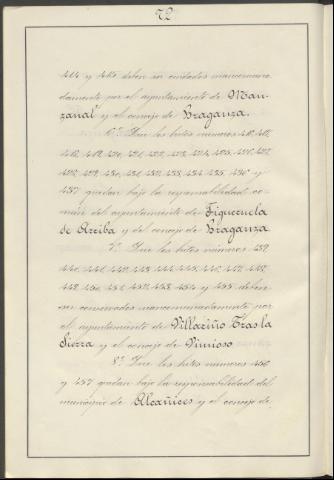 72
414 y 415, deben ser cuidados mancomuna-
damente por el ayuntamiento de Man-
zanal y el concejo de Braganza.
6º Que los hitos números 416, 417,
418, 419, 420, 421, 422, 423, 424, 425, 426, 427,
428, 429, 430, 431, 432, 433, 434, 435, 436 y
437 quedan bajo la responsabilidad co-
mún del ayuntamiento de Figueruela
de Arriba y del concejo de Braganza
7º Que los hitos números 439,
440, 441, 442, 443, 444, 445, 446, 447, 448,
449, 450, 451, 452, 453, 454 y 455 deben
ser conservados mancomunadamente por
el ayuntamiento de Villariño Tras la
Sierra y el concejo de Vimioso
8º Que los hitos números 456
y 457 quedan bajo la responsabilidad del
municipio de Alcañices y el concejo de